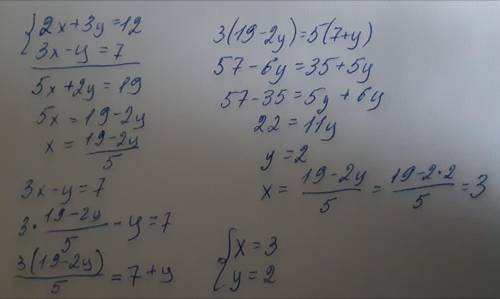 {2x+3y=12
3x-y=7
5x+2y=19
5x=19-2y
x=\frac{19-2y}{5}
3x-y=7
3·\frac{19-2y}{5}-y=7
\frac{3(19-2y)}{5}=7+y
3(19-2y)=5(7+y)
57-6y=35+5y
57-35=5y+6y
22=11y
y=2
x=\frac{19-2y}{5}=\frac{19-2·2}{5}=3
{x=3
y=2